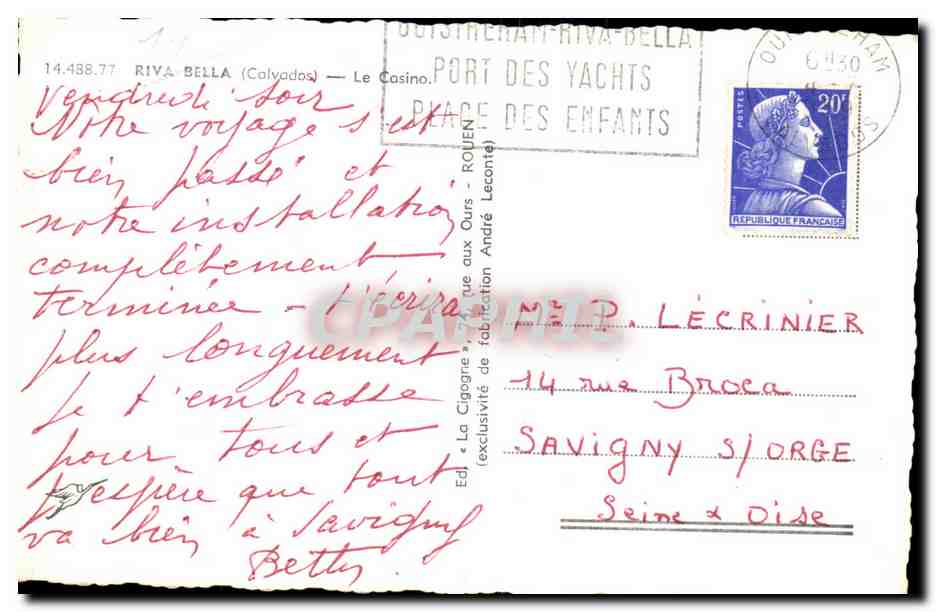 14.488.77 RIVA-BELLA (Calvados) — Le Casino.
Vendredi soir
Notre voyage s'est
bien passé et
notre installation
complètement
terminée - t'écrirai
plus longuement
Je t'embrasse
pour tous et
j'espère que tout
va bien à Savigny
Betty.
Ed. « La Cigogne », 74, rue aux Ours - ROUEN
(exclusivité de fabrication André Leconte)
OUISTREHAM-RIVA-BELLA
PORT DES YACHTS
PLAGE DES ENFANTS
6H30
POSTES
20F
REPUBLIQUE FRANÇAISE
Mr P. LÉCRINIER
14 rue Broca
SAVIGNY S/ORGE
Seine & Oise
CPAPHIL